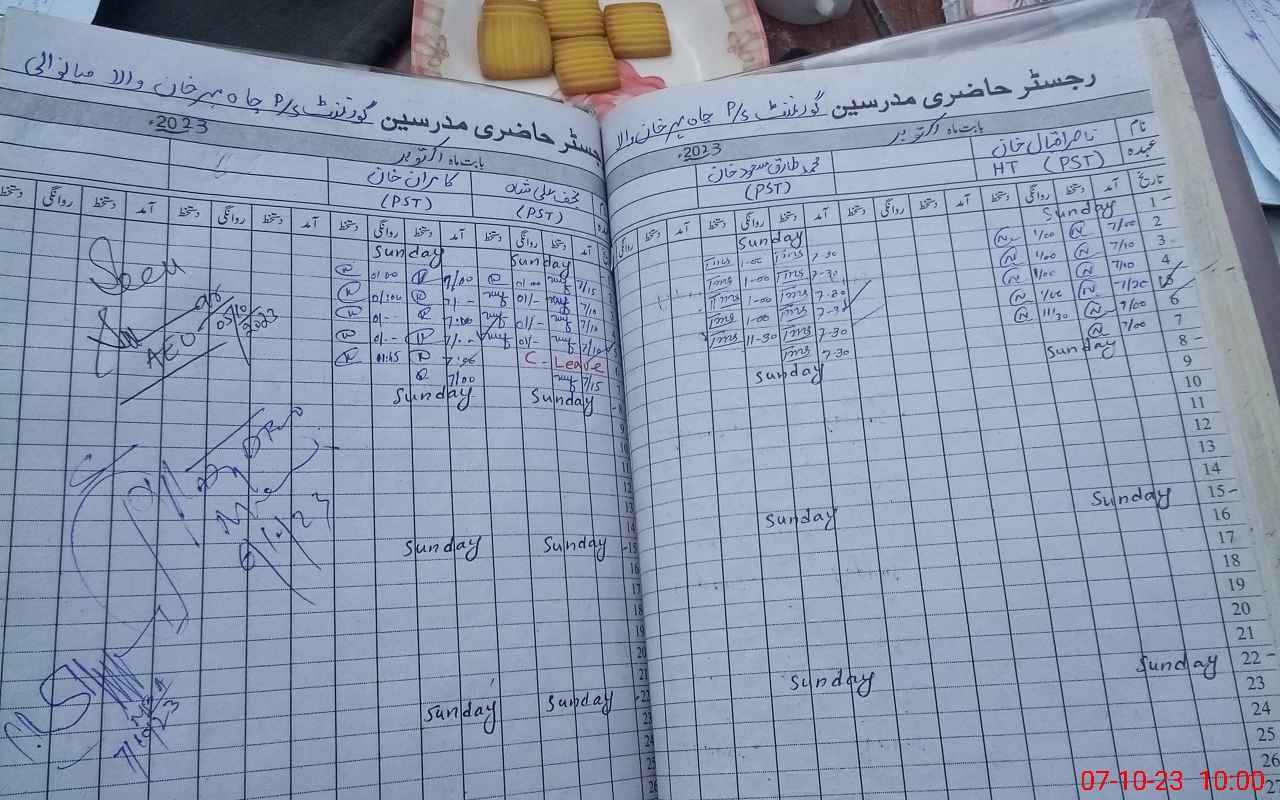 رجسٹر حاضری مدرسین گورنمنٹ P/S چاہ مہر خان والا
بابت ماہ اکتوبر 2023ء
نام ناصر اقبال خان محمد طارق مسعود خان
عہدہ HT (PST) (PST)
تاریخ آمد دستخط روانگی دستخط آمد دستخط روانگی دستخط آمد دستخط روانگی دستخط آمد دستخط روانگی
1 Sunday Sunday
2 7/00 1/00 7-30 1-00
3 7/10 1/00 7-30 1-00
4 7/10 1/00 7-30 1-00
5 7/20 1/00 7-30 1-00
6 7/00 11/30 7-30 11-30
7 7/00 7-30
8 Sunday Sunday
9
10
11
12
13
14
15 Sunday Sunday
16
17
18
19
20
21
22 Sunday Sunday
23
24
25
26
27
رجسٹر حاضری مدرسین گورنمنٹ P/S چاہ مہر خان والا میانوالی
بابت ماہ اکتوبر 2023ء
نجف علی شاہ کامران خان
(PST) (PST)
آمد دستخط روانگی دستخط آمد دستخط روانگی دستخط آمد دستخط روانگی دستخط آمد دستخط روانگی دستخط
Sunday Sunday
7/15 01:00 7/00 01:00
7/10 01/- 7/- 01:00
7/10 01/- 7:00 01:--
7/10 01/- 7/-- 01:--
C - Leave 7:00 11:45
7/15 7/00
8 Sunday Sunday
9
10
11
12
13
14
15 Sunday Sunday
16
17
18
19
20
21
22 Sunday Sunday
23
24
25
26
Seen
AEO
05/10/2023
07-10-23 10:00